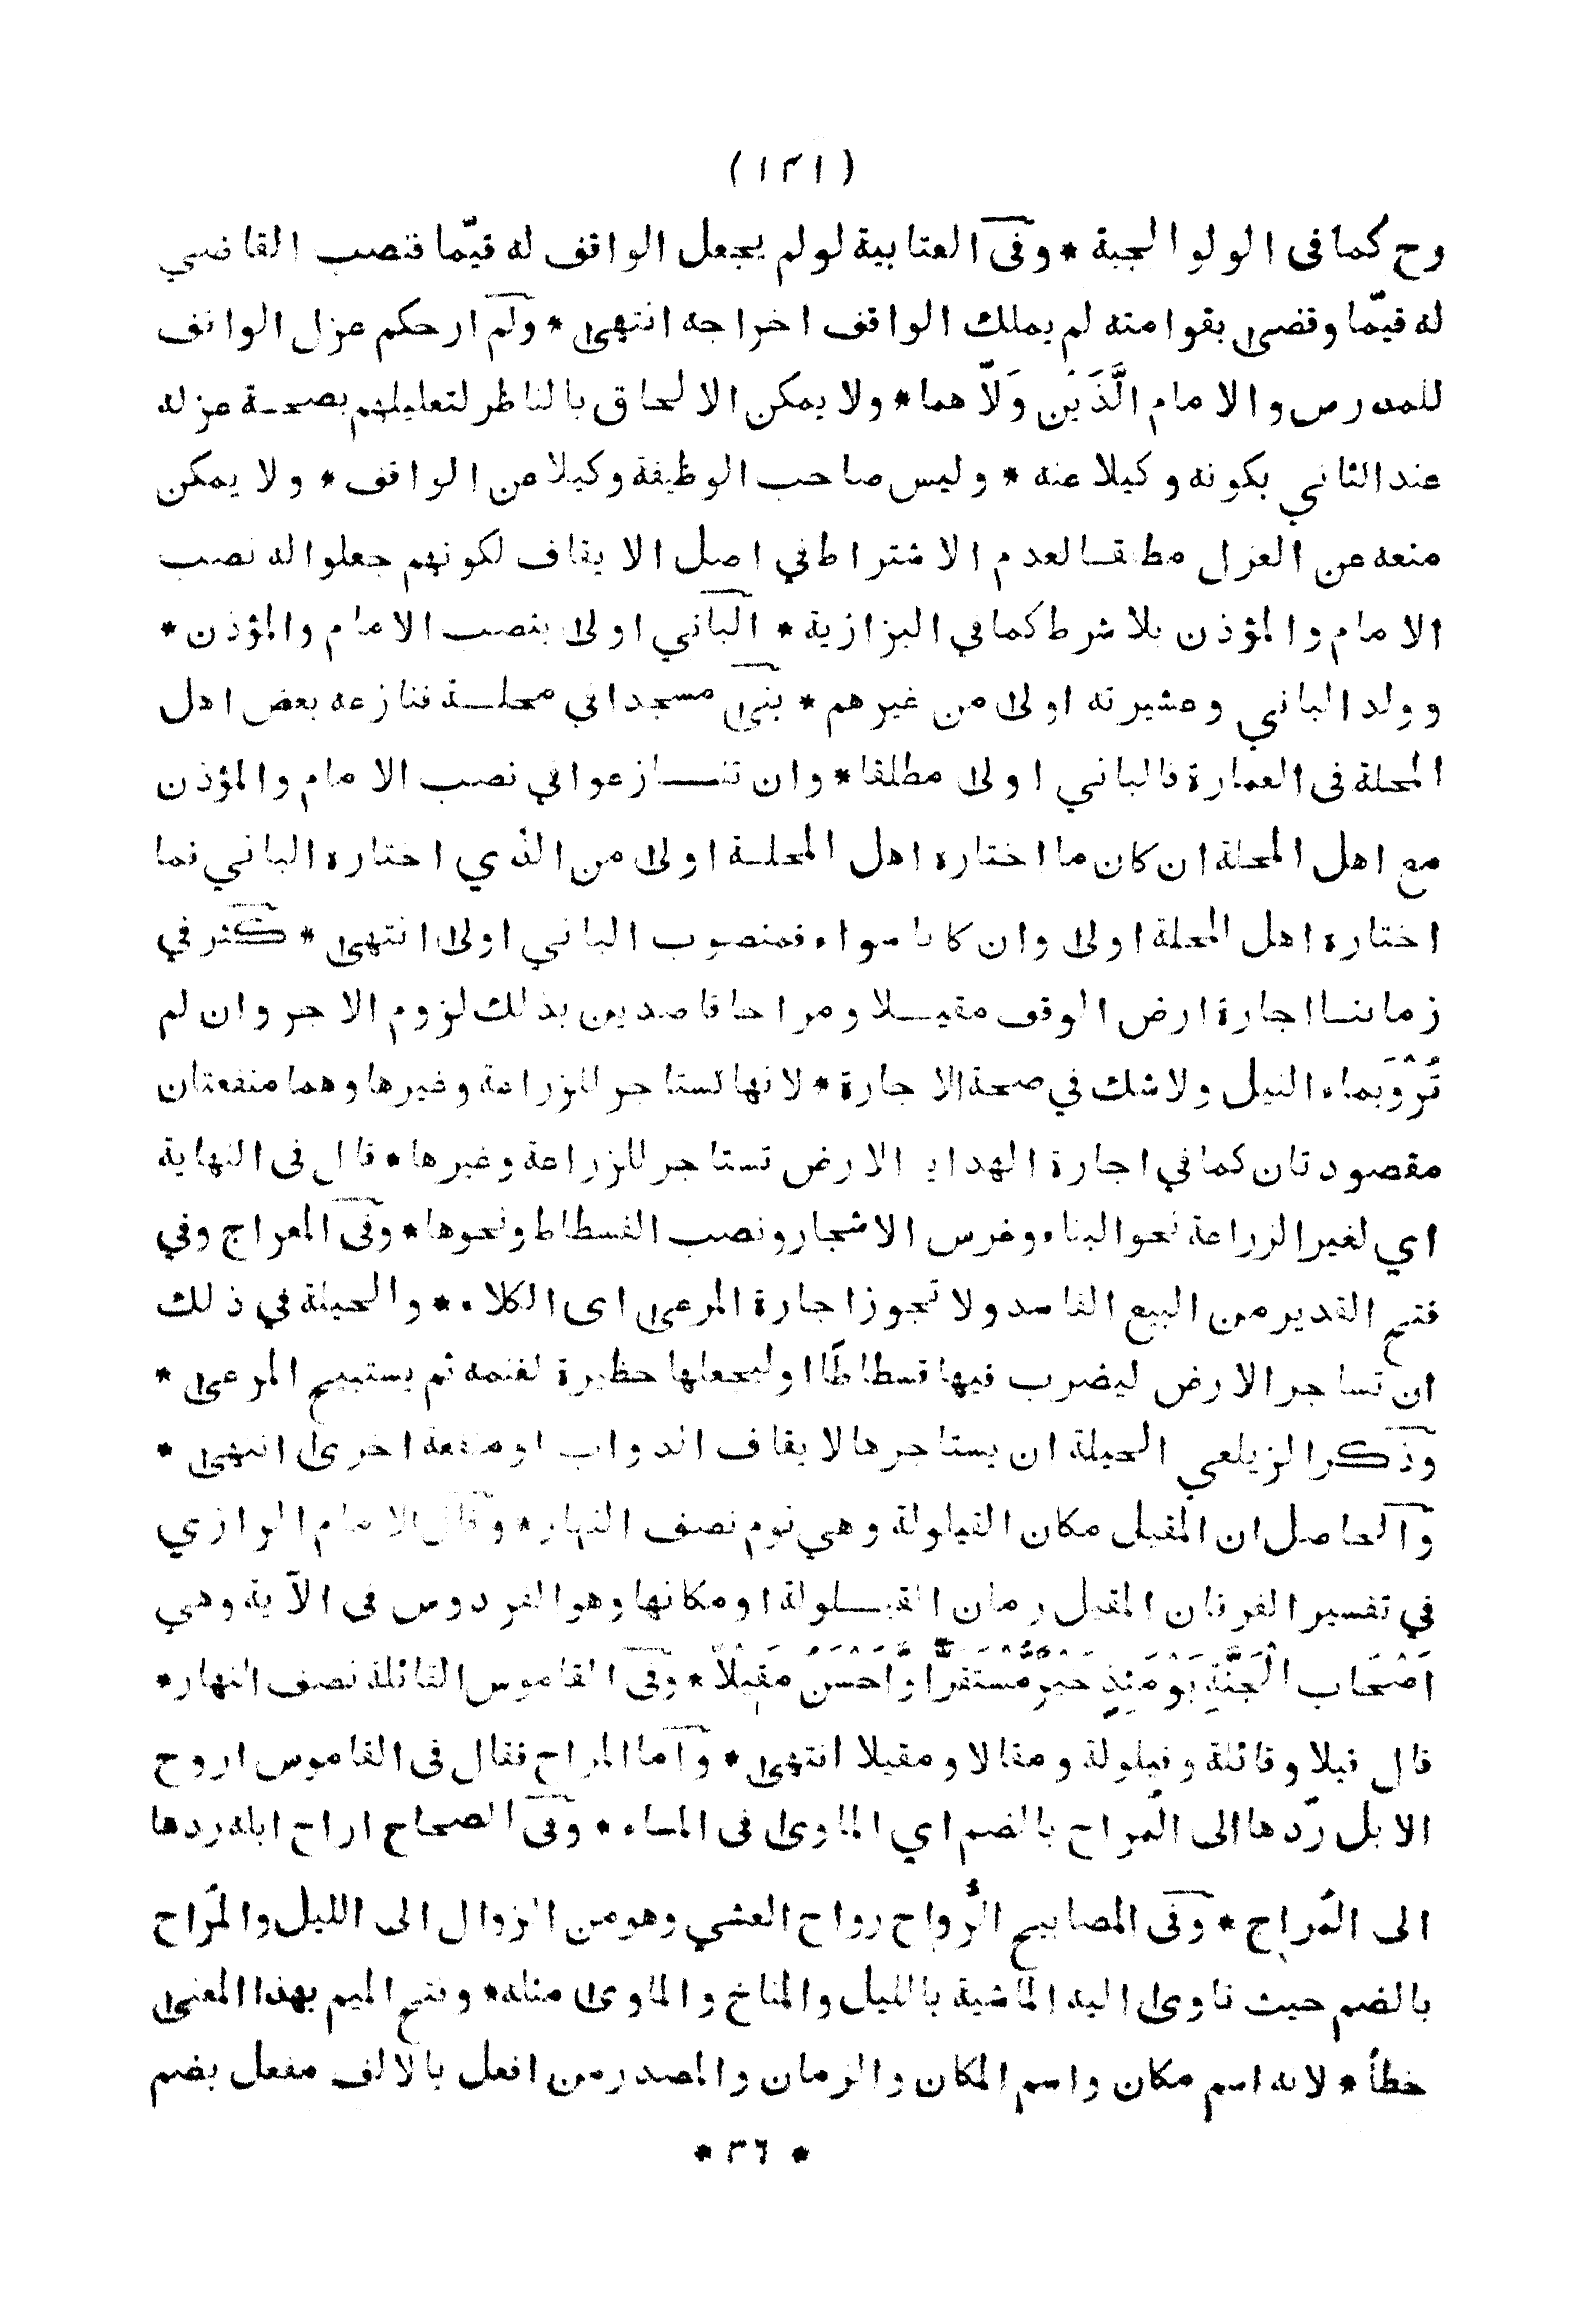 (١٣١)
رح كما فى الولوالجية * وفى العتابية لو لم يجعل الواقف له قيّما فنصب القاضي
له قيّما وقضى بقوامته لم يملك الواقف اخراجه انتهى * ولم ار حكم عزل الواقف
للمدرس والامام الَّذَيْن وَلّاهما * ولا يمكن الالحاق بالناظر لتعليلهم بصحة عزله
عند الثاني بكونه وكيلا عنه * وليس صاحب الوظيفة وكيلا عن الواقف * ولا يمكن
منعه عن العزل مطلقا لعدم الاشتراط في اصل الايقاف لكونهم جعلوا له نصب
الامام والمؤذن بلا شرط كما في البزازية * الباني اولى بنصب الامام والمؤذن *
وولد الباني وعشيرته اولى من غيرهم * بنى مسجدا في محلة فنازعه بعض اهل
المحلة فى العمارة فالباني اولى مطلقا * وان تنازعوا في نصب الامام والمؤذن
مع اهل المحلة ان كان ما اختاره اهل المحلة اولى من الذي اختاره الباني فما
اختاره اهل المحلة اولى وان كانا سواء فمنصوب الباني اولى انتهى * كثر في
زماننا اجارة ارض الوقف مقيلا ومراحا قاصدين بذلك لزوم الاجر وان لم
تُرْوَ بماء النيل ولا شك في صحة الاجارة * لانها تستاجر للزراعة وغيرها وهما منفعتان
مقصودتان كما في اجارة الهداية الارض تستاجر للزراعة وغيرها * قال فى النهاية
اي لغير الزراعة نحو البناء وغرس الاشجار ونصب الفسطاط ونحوها * وفى المعراج وفي
فتح القدير من البيع الفاسد ولا تجوز اجارة المرعى اى الكلاء * والحيلة في ذلك
ان تساجر الارض ليضرب فيها فسطاطًا او ليجعلها حظيرة لغنمه ثم يستبيح المرعى *
وذكر الزيلعي الحيلة ان يستاجرها لايقاف الدواب او منفعة اخرى انتهى *
والحاصل ان المقيل مكان القيلولة وهي نوم نصف النهار * وقال الامام الرازي
في تفسير الفرقان المقيل زمان القيلولة او مكانها وهو الفردوس في الآية وهي
اَصْحَاب الْجَنَّةِ يَوْمَئِذٍ خَيْرٌ مُسْتَقَرًّا وَّاَحْسَنُ مَقِيْلًا * وفى القاموس القائلة نصف النهار *
قال قيلا وقائلة وقيلولة ومقالا ومقيلا انتهى * واما المراح فقال فى القاموس اروح
الابل ردّها الى المُراح بالضم اي الماوى فى المساء * وفى الصحاح اراح ابله ردها
الى المُراح * وفى المصابيح الرَّواح رواح العشي وهو من الزوال الى الليل والمُراح
بالضم حيث تاوى اليه الماشية بالليل والمناخ والماوى مثله * وفتح الميم بهذا المعنى
خطأ * لانه اسم مكان واسم المكان والزمان والمصدر من افعل بالالف مفعل بضم
* ٣٦ *